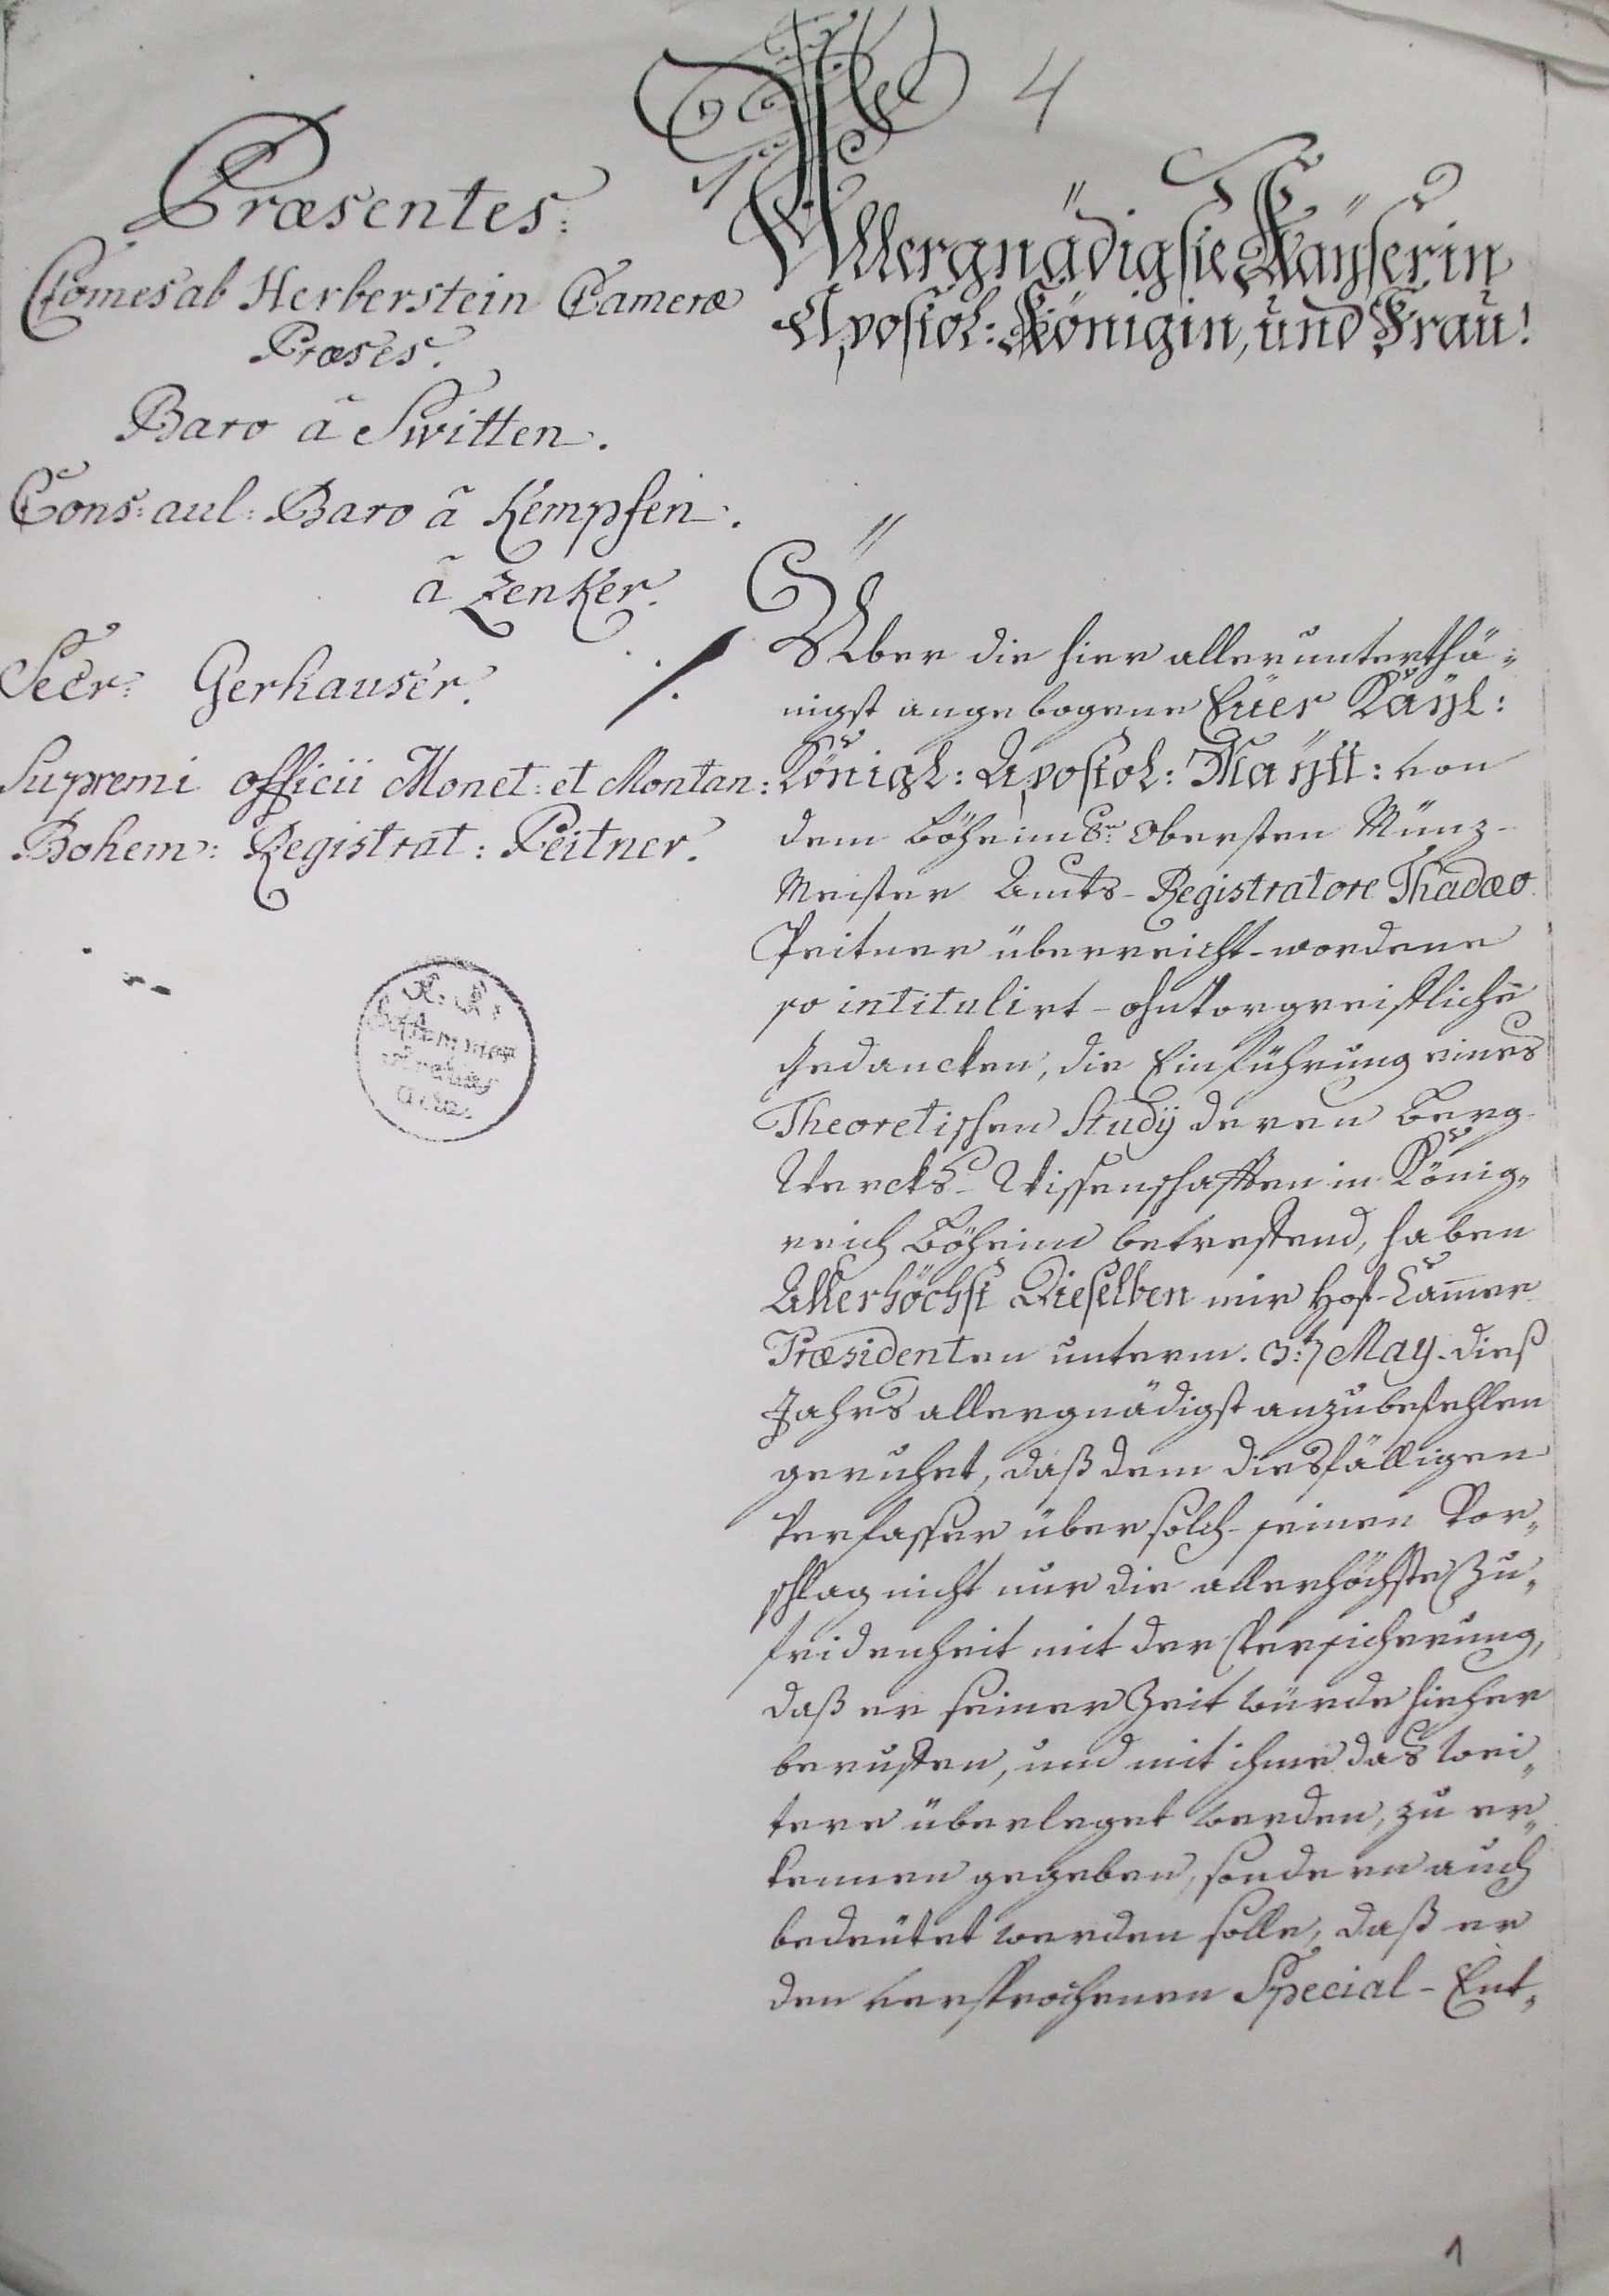 4
Præsentes:
Comes ab Herberstein Cameræ
Præses.
Baro â Switten.
Cons: aul: Baro â Kempfen.
â Zenker.
Secr: Gerhauser.
Supremi officii Monet: et Montan:
Bohem: Registrat: Peitner.
Allergnädigste Kaÿserin
Apostol: Königin, und Frau!
Über die hier allerunterthä-
nigst angebogene Euer Kaÿl:
Königl: Apostol: Maÿtt: von
dem Böheims. Obersten Münz-
Meister Amts-Registratore Thadæo
Peitner überreicht-wordene
so intitulirt-ohnvorgreifliche
Gedancken, die Einführung eines
Theoretischen Studÿ deren Berg-
Wercks-Wissenschafften in König-
reich Böheim betreffend, haben
Allerhöchst Dieselben mir Hof-Cam̄er-
Præsidenten unterm 3: May dieß
Jahrs allergnädigst anzubefehlen
geruhet, daß dem diesfälligen
Verfasser über solch-seinen Vor-
schlag nicht nur die allerhöchste Zu-
fridenheit mit der Versicherung,
daß er seiner Zeit würde hieher
beruffen, und mit ihme das wei-
tere überleget werden, zu er-
kennen gegeben, sondern auch
bedeutet werden solle, daß er
den versprochenen Special-Ent-
1